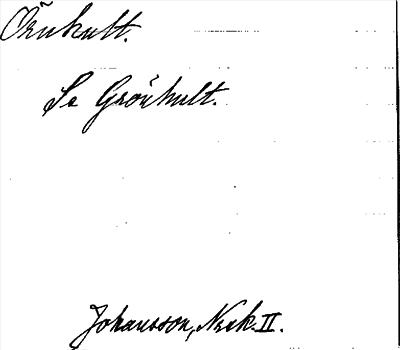 Örnkult.
Se Grönhult.
Johansson, Nsk. II.